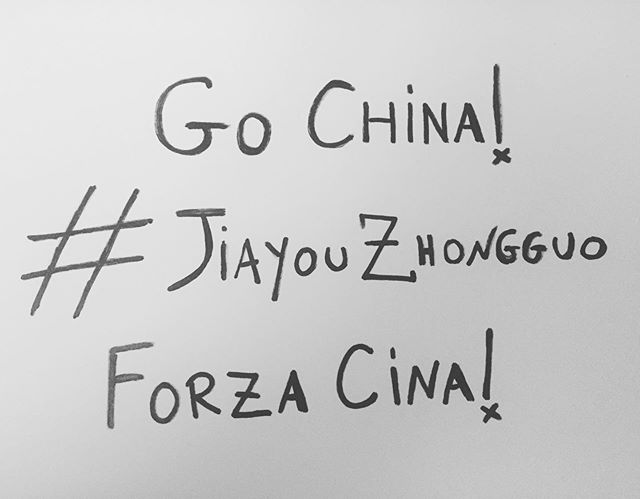 Go CHiNA!
#JiAYOUZHONGGUO
FORZA CiNA!